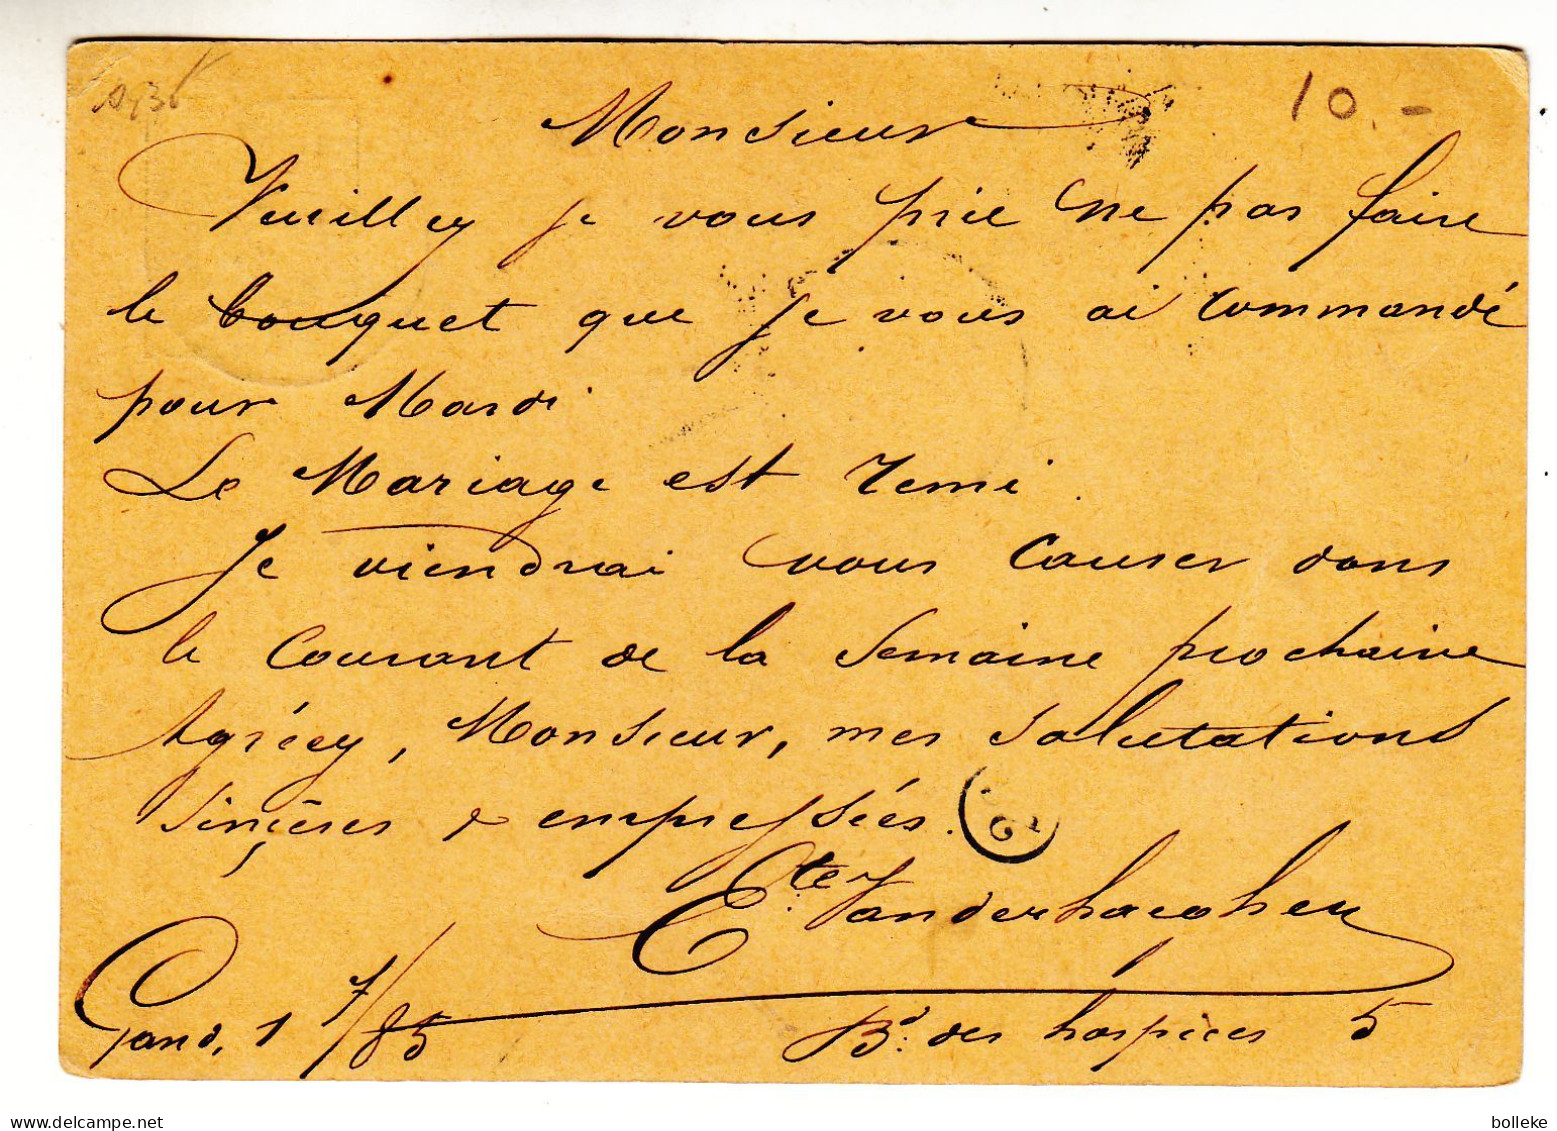 10.-
Monsieur
Veuillez je vous prie ne pas faire
le bouquet que je vous ai commandé
pour Mardi
Le Mariage est remi.
Je viendrai vous causer dans
le courant de la Semaine prochaine
Agréez, Monsieur, mes Salutations
Sinçères & empressées.
Vanderhaeghen
Gand, 1 7/85 Bd. des hospices 5
www.delcampe.net bolleke